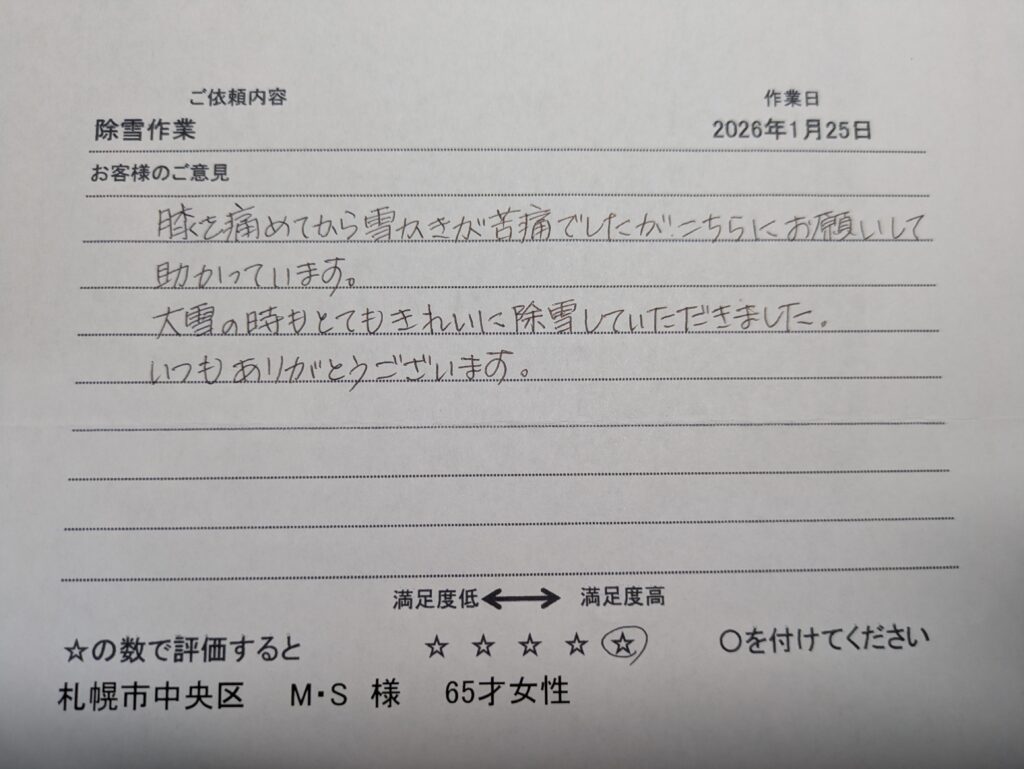 ご依頼内容 作業日
除雪作業 2026年1月25日
お客様のご意見
膝を痛めてから雪かきが苦痛でしたが、こちらにお願いして
助かっています。
大雪の時もとてもきれいに除雪していただきました。
いつもありがとうございます。
満足度低 ←→ 満足度高
☆の数で評価すると ☆ ☆ ☆ ☆ ☆ ○を付けてください
札幌市中央区 M・S 様 65才女性